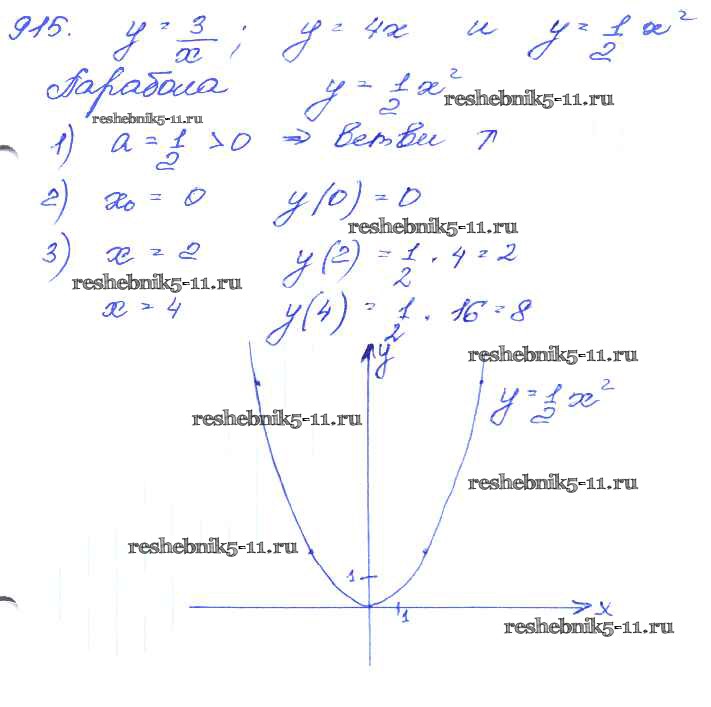 915. y = 3/x ; y = 4x и y = 1/2 x²
Парабола y = 1/2 x²
reshebnik5-11.ru
reshebnik5-11.ru
1) a = 1/2 > 0 ⇒ ветви ↑
2) x₀ = 0 y(0) = 0
reshebnik5-11.ru
3) x = 2 y(2) = 1/2 · 4 = 2
reshebnik5-11.ru
x = 4 y(4) = 1/2 · 16 = 8
y
reshebnik5-11.ru
y = 1/2 x²
reshebnik5-11.ru
reshebnik5-11.ru
reshebnik5-11.ru
1
1
x
reshebnik5-11.ru